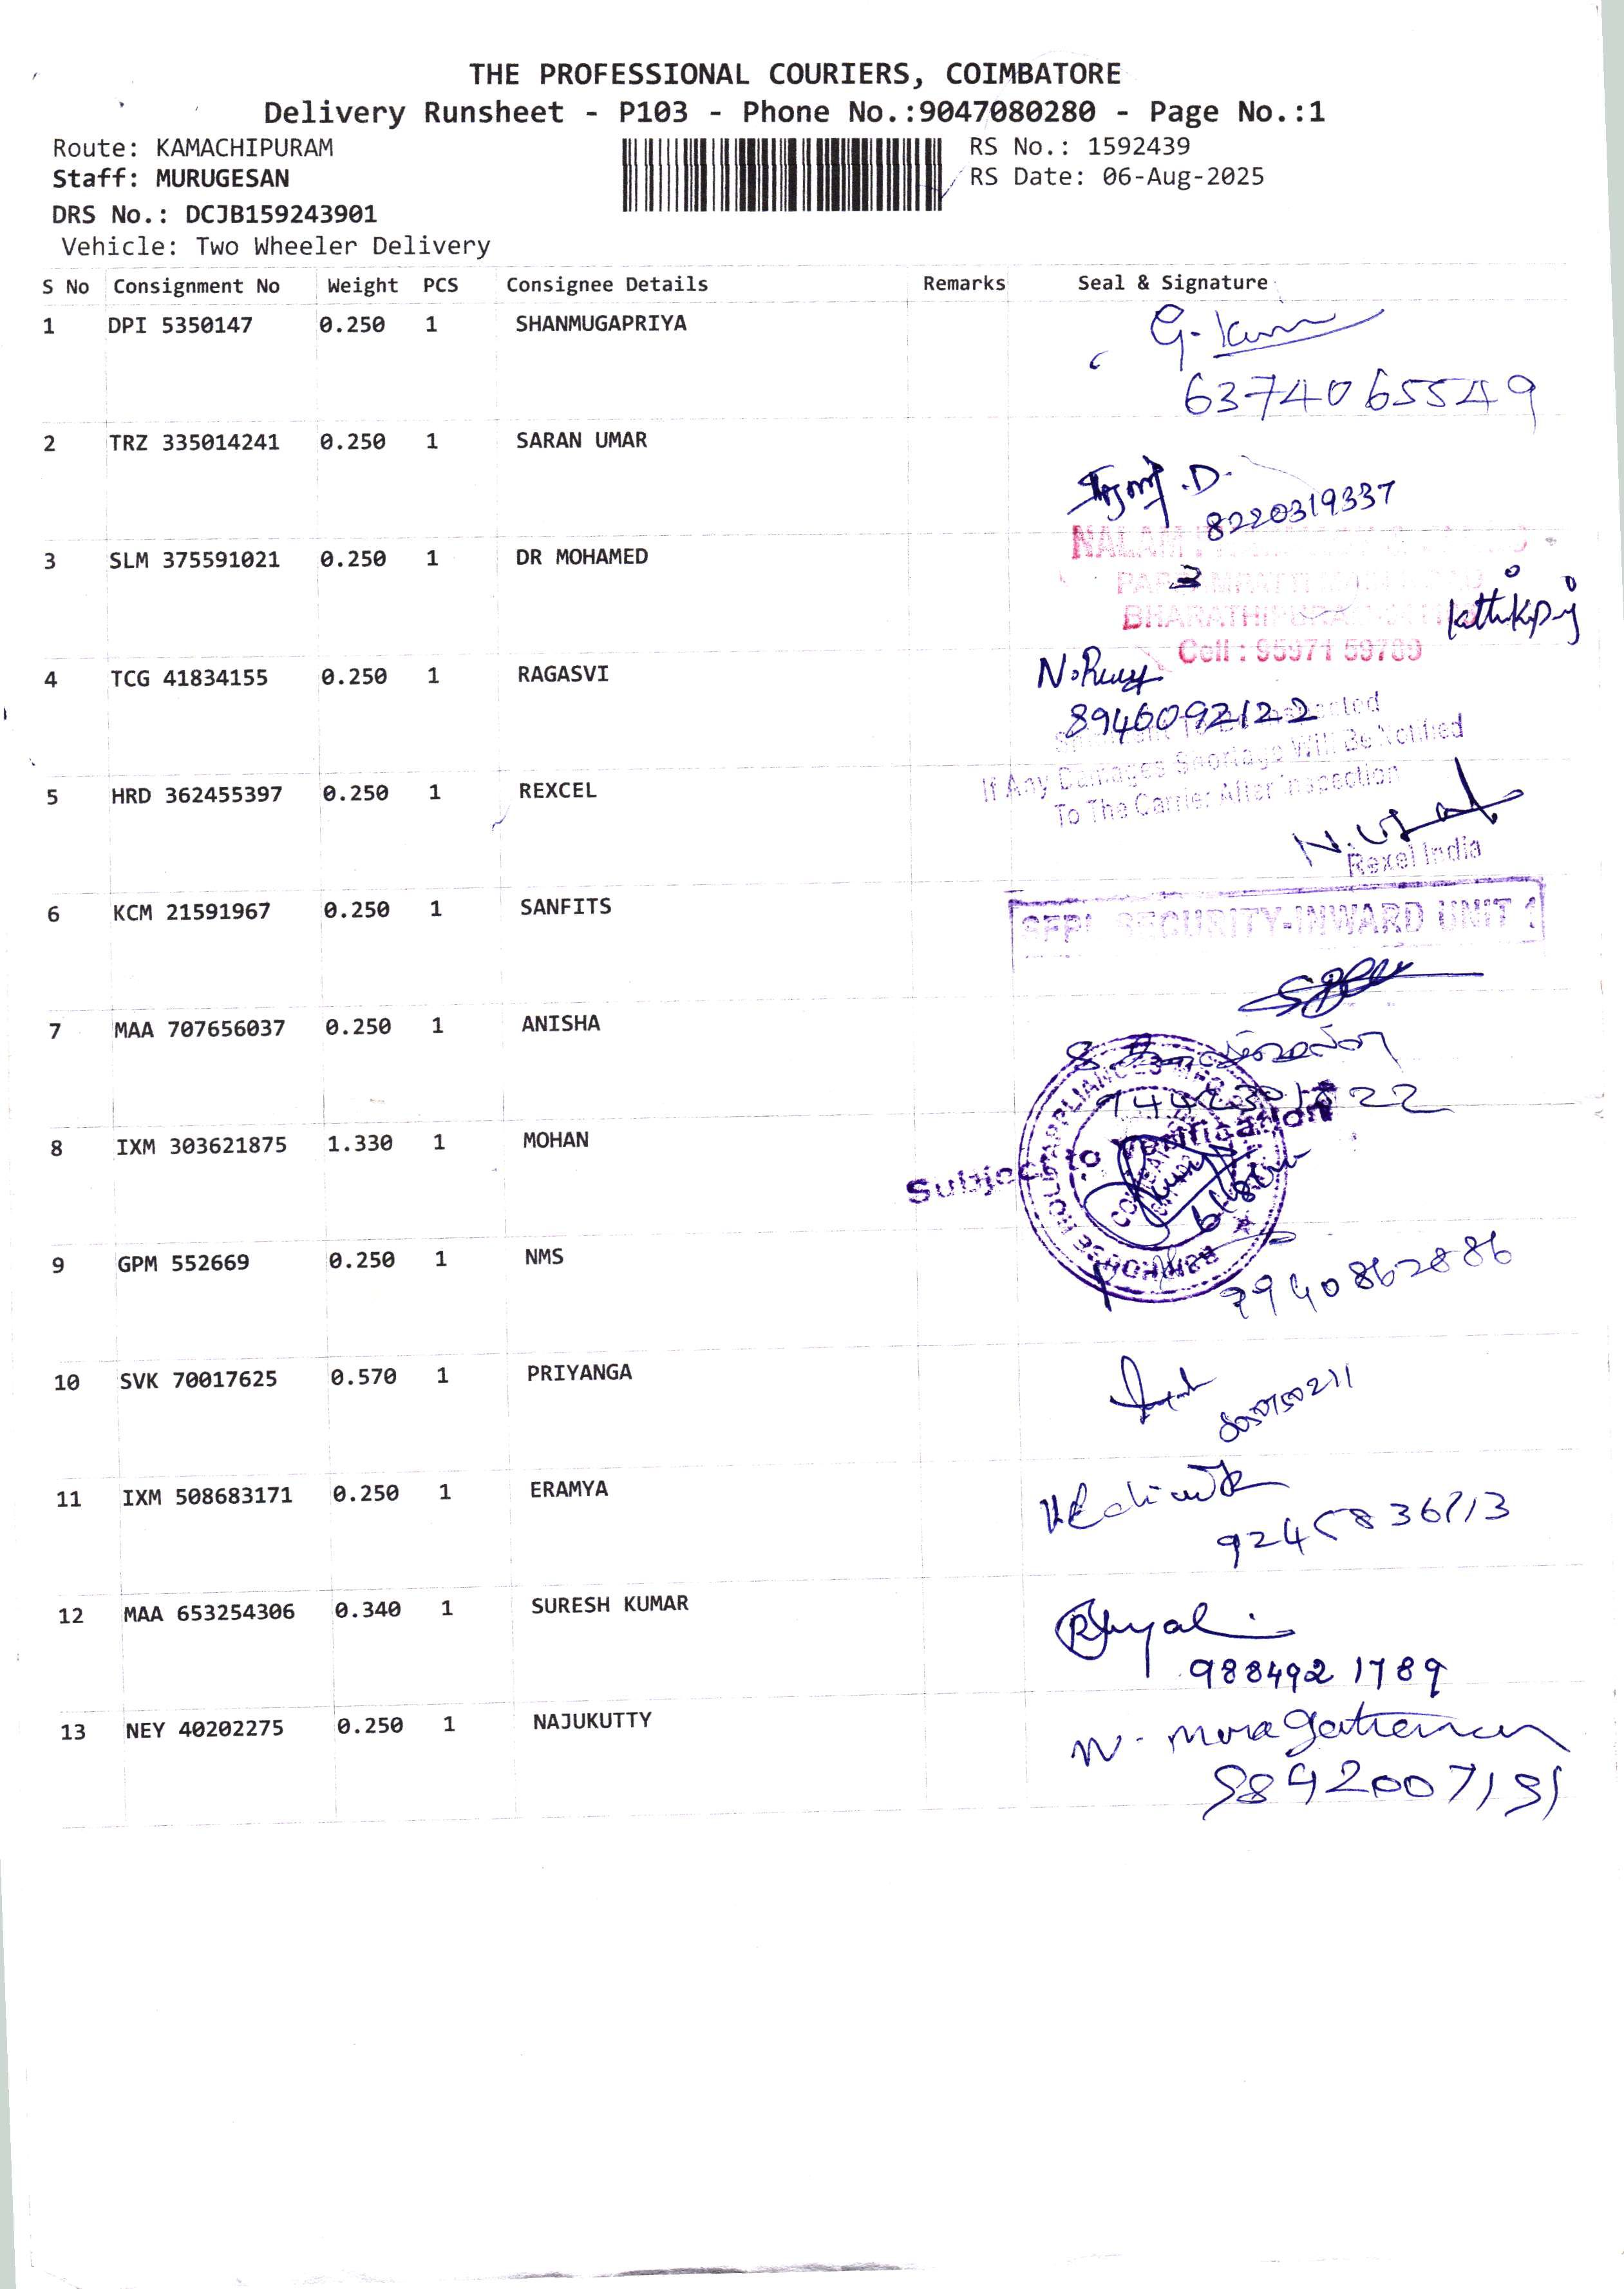 THE PROFESSIONAL COURIERS, COIMBATORE
Delivery Runsheet - P103 - Phone No.:9047080280 - Page No.:1
Route: KAMACHIPURAM
RS No.: 1592439
Staff: MURUGESAN
RS Date: 06-Aug-2025
DRS No.: DCJB159243901
Vehicle: Two Wheeler Delivery
S No Consignment No Weight PCS Consignee Details Remarks Seal & Signature
1 DPI 5350147 0.250 1 SHANMUGAPRIYA
63740 65549
2 TRZ 335014241 0.250 1 SARAN UMAR
8220319337
NALAM
3 SLM 375591021 0.250 1 DR MOHAMED
Cell :
4 TCG 41834155 0.250 1 RAGASVI
8946092122
If Any Damages Shortage Will Be Notified
To The Carrier After Inspection
5 HRD 362455397 0.250 1 REXCEL
Rexel India
6 KCM 21591967 0.250 1 SANFITS
SECURITY-INWARD UNIT 1
7 MAA 707656037 0.250 1 ANISHA
8 IXM 303621875 1.330 1 MOHAN
Subject to Verification
9 GPM 552669 0.250 1 NMS
10 SVK 70017625 0.570 1 PRIYANGA
11 IXM 508683171 0.250 1 ERAMYA
12 MAA 653254306 0.340 1 SURESH KUMAR
988492 1789
13 NEY 40202275 0.250 1 NAJUKUTTY